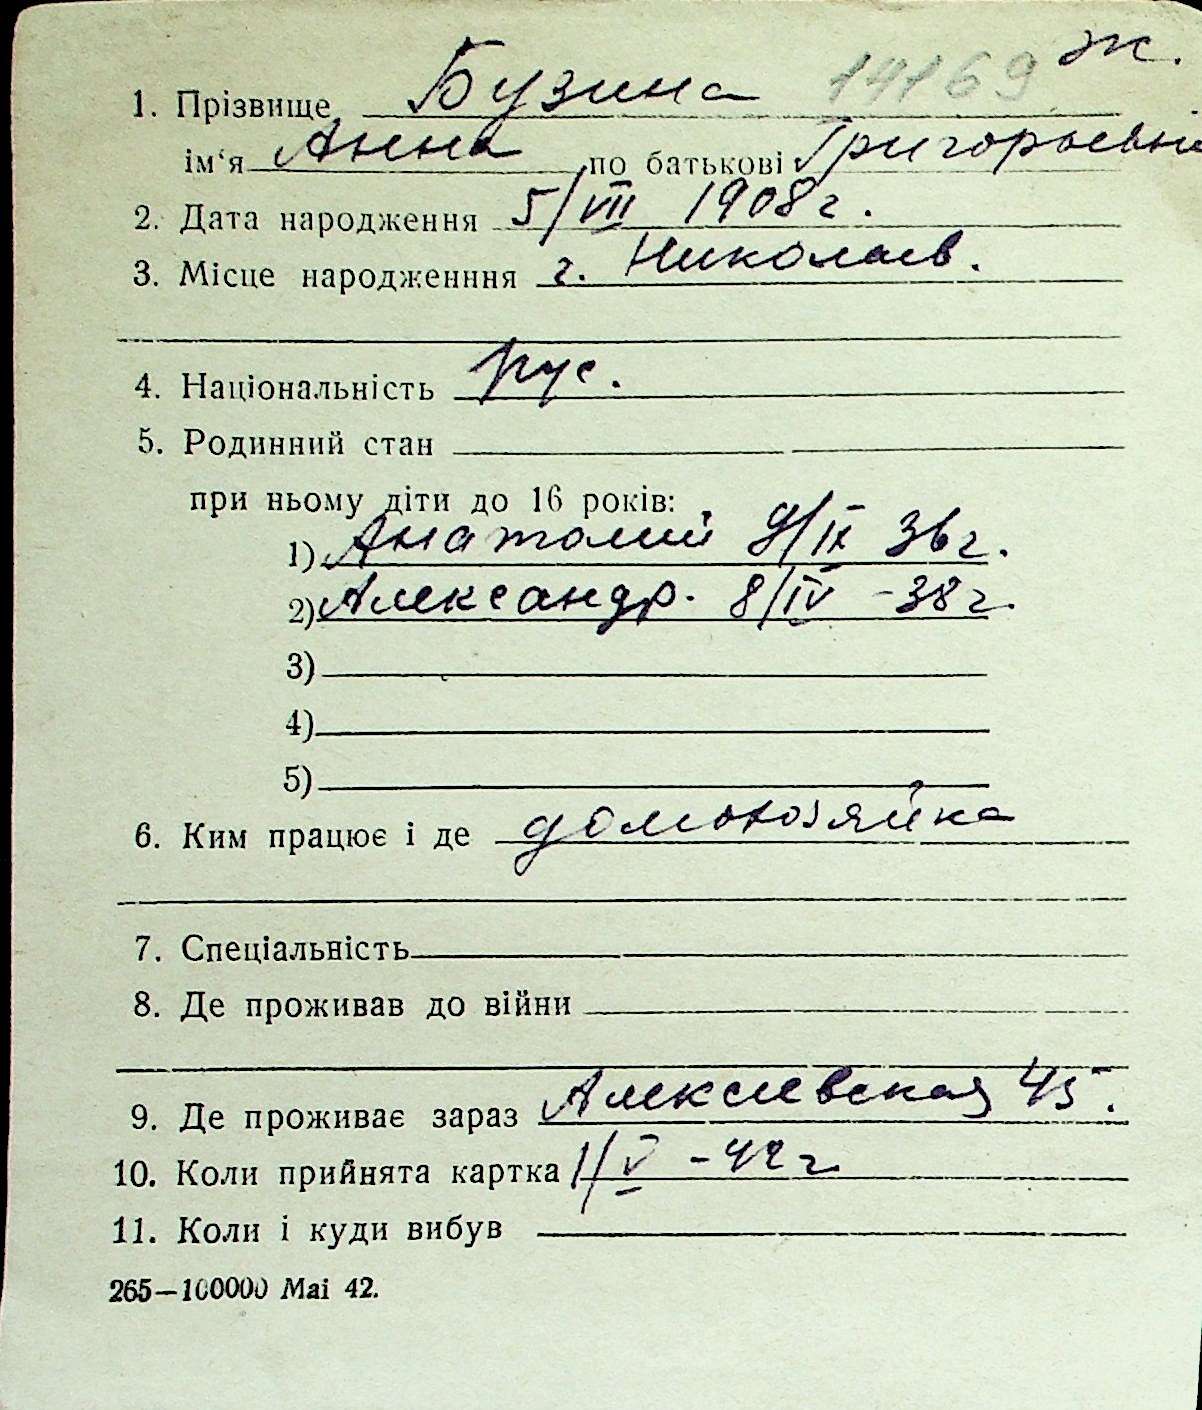 ж.
14169
1. Прізвище Бузина
ім'я Анна по батькові Григорьевна
2. Дата народження 5/VII 1908 г.
3. Місце народженння г. Николаев.
4. Національність рус.
5. Родинний стан
при ньому діти до 16 років:
1) Анатолий 9/IX 36 г.
2) Александр. 8/IV - 38 г.
3)
4)
5)
6. Ким працює і де домохозяйка
7. Спеціальність
8. Де проживав до війни
9. Де проживає зараз Алексеевская 45.
10. Коли прийнята картка 1/V - 42 г
11. Коли і куди вибув
265—100000 Mai 42.